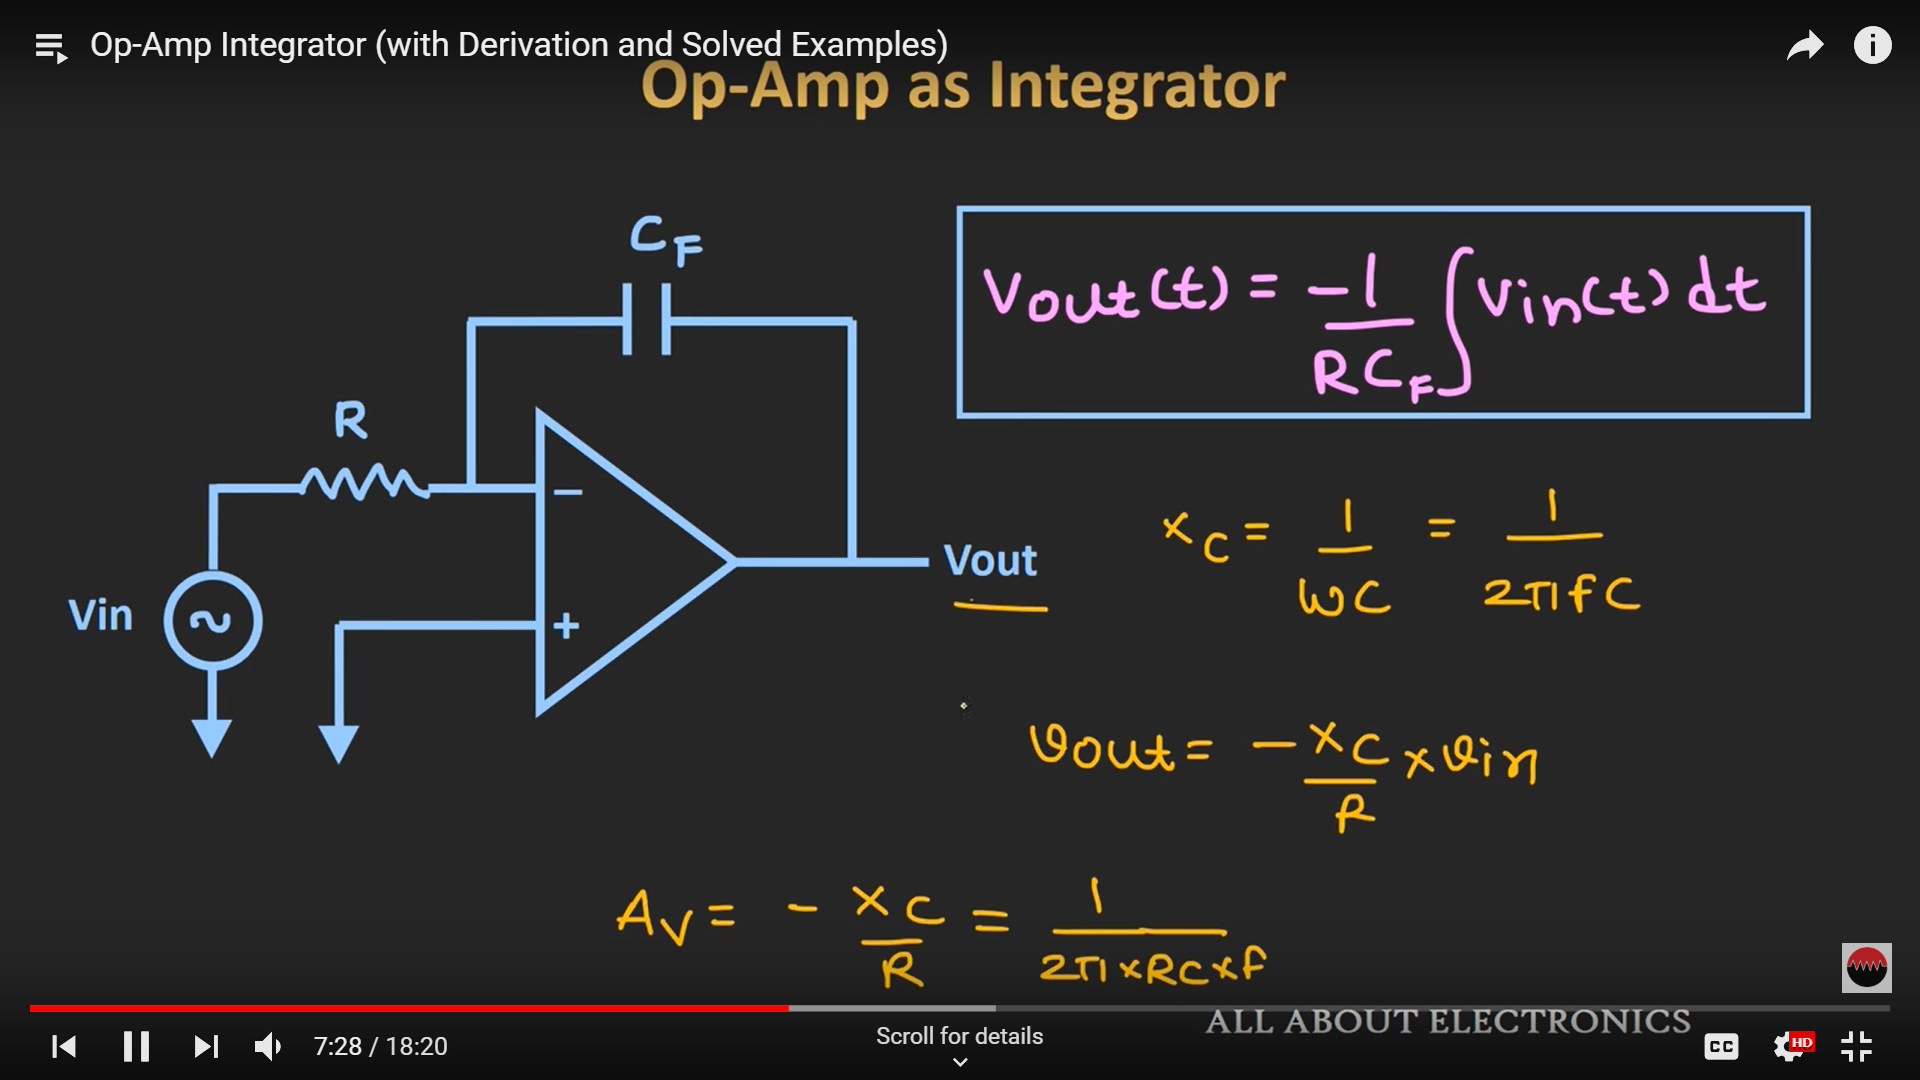 Op-Amp Integrator (with Derivation and Solved Examples)
Op-Amp as Integrator
C_F
Vout(t) = -1/(RC_F) ∫ Vin(t) dt
R
−
+
Vin
Vout
X_C = 1/(ωC) = 1/(2πfC)
Vout = -X_C/R × Vin
A_V = - X_C/R = 1/(2π×RC×f)
ALL ABOUT ELECTRONICS
7:28 / 18:20
Scroll for details
CC
HD